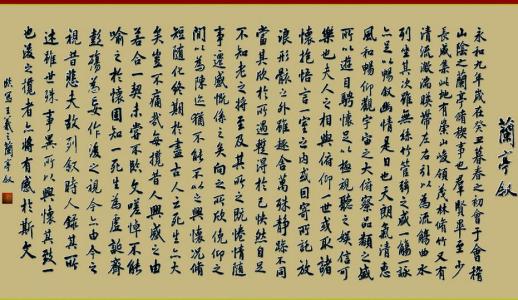 蘭亭叙
永和九年歲在癸丑暮春之初會于會稽
山陰之蘭亭脩稧事也羣賢畢至少
長咸集此地有崇山峻領茂林脩竹又有
清流激湍暎帶左右引以為流觴曲水
列坐其次雖無絲竹管絃之盛一觴一詠
亦足以暢叙幽情是日也天朗氣清惠
風和暢仰觀宇宙之大俯察品類之盛
所以遊目騁懷足以極視聽之娛信可
樂也夫人之相與俯仰一世或取諸
懷抱悟言一室之內或因寄所託放
浪形骸之外雖趣舍萬殊靜躁不同
當其欣於所遇暫得於己怏然自足
不知老之將至及其所之既惓情隨
事遷感慨係之矣向之所欣俛仰之
間以為陳迹猶不能不以之興懷況脩
短隨化終期於盡古人云死生亦大
矣豈不痛哉每攬昔人興感之由
若合一契未嘗不臨文嗟悼不能
喻之於懷固知一死生為虛誕齊
彭殤為妄作後之視今亦由今之
視昔悲夫故列叙時人錄其所
述雖世殊事異所以興懷其致一
也後之攬者亦將有感於斯文
臨寫王羲之蘭亭叙